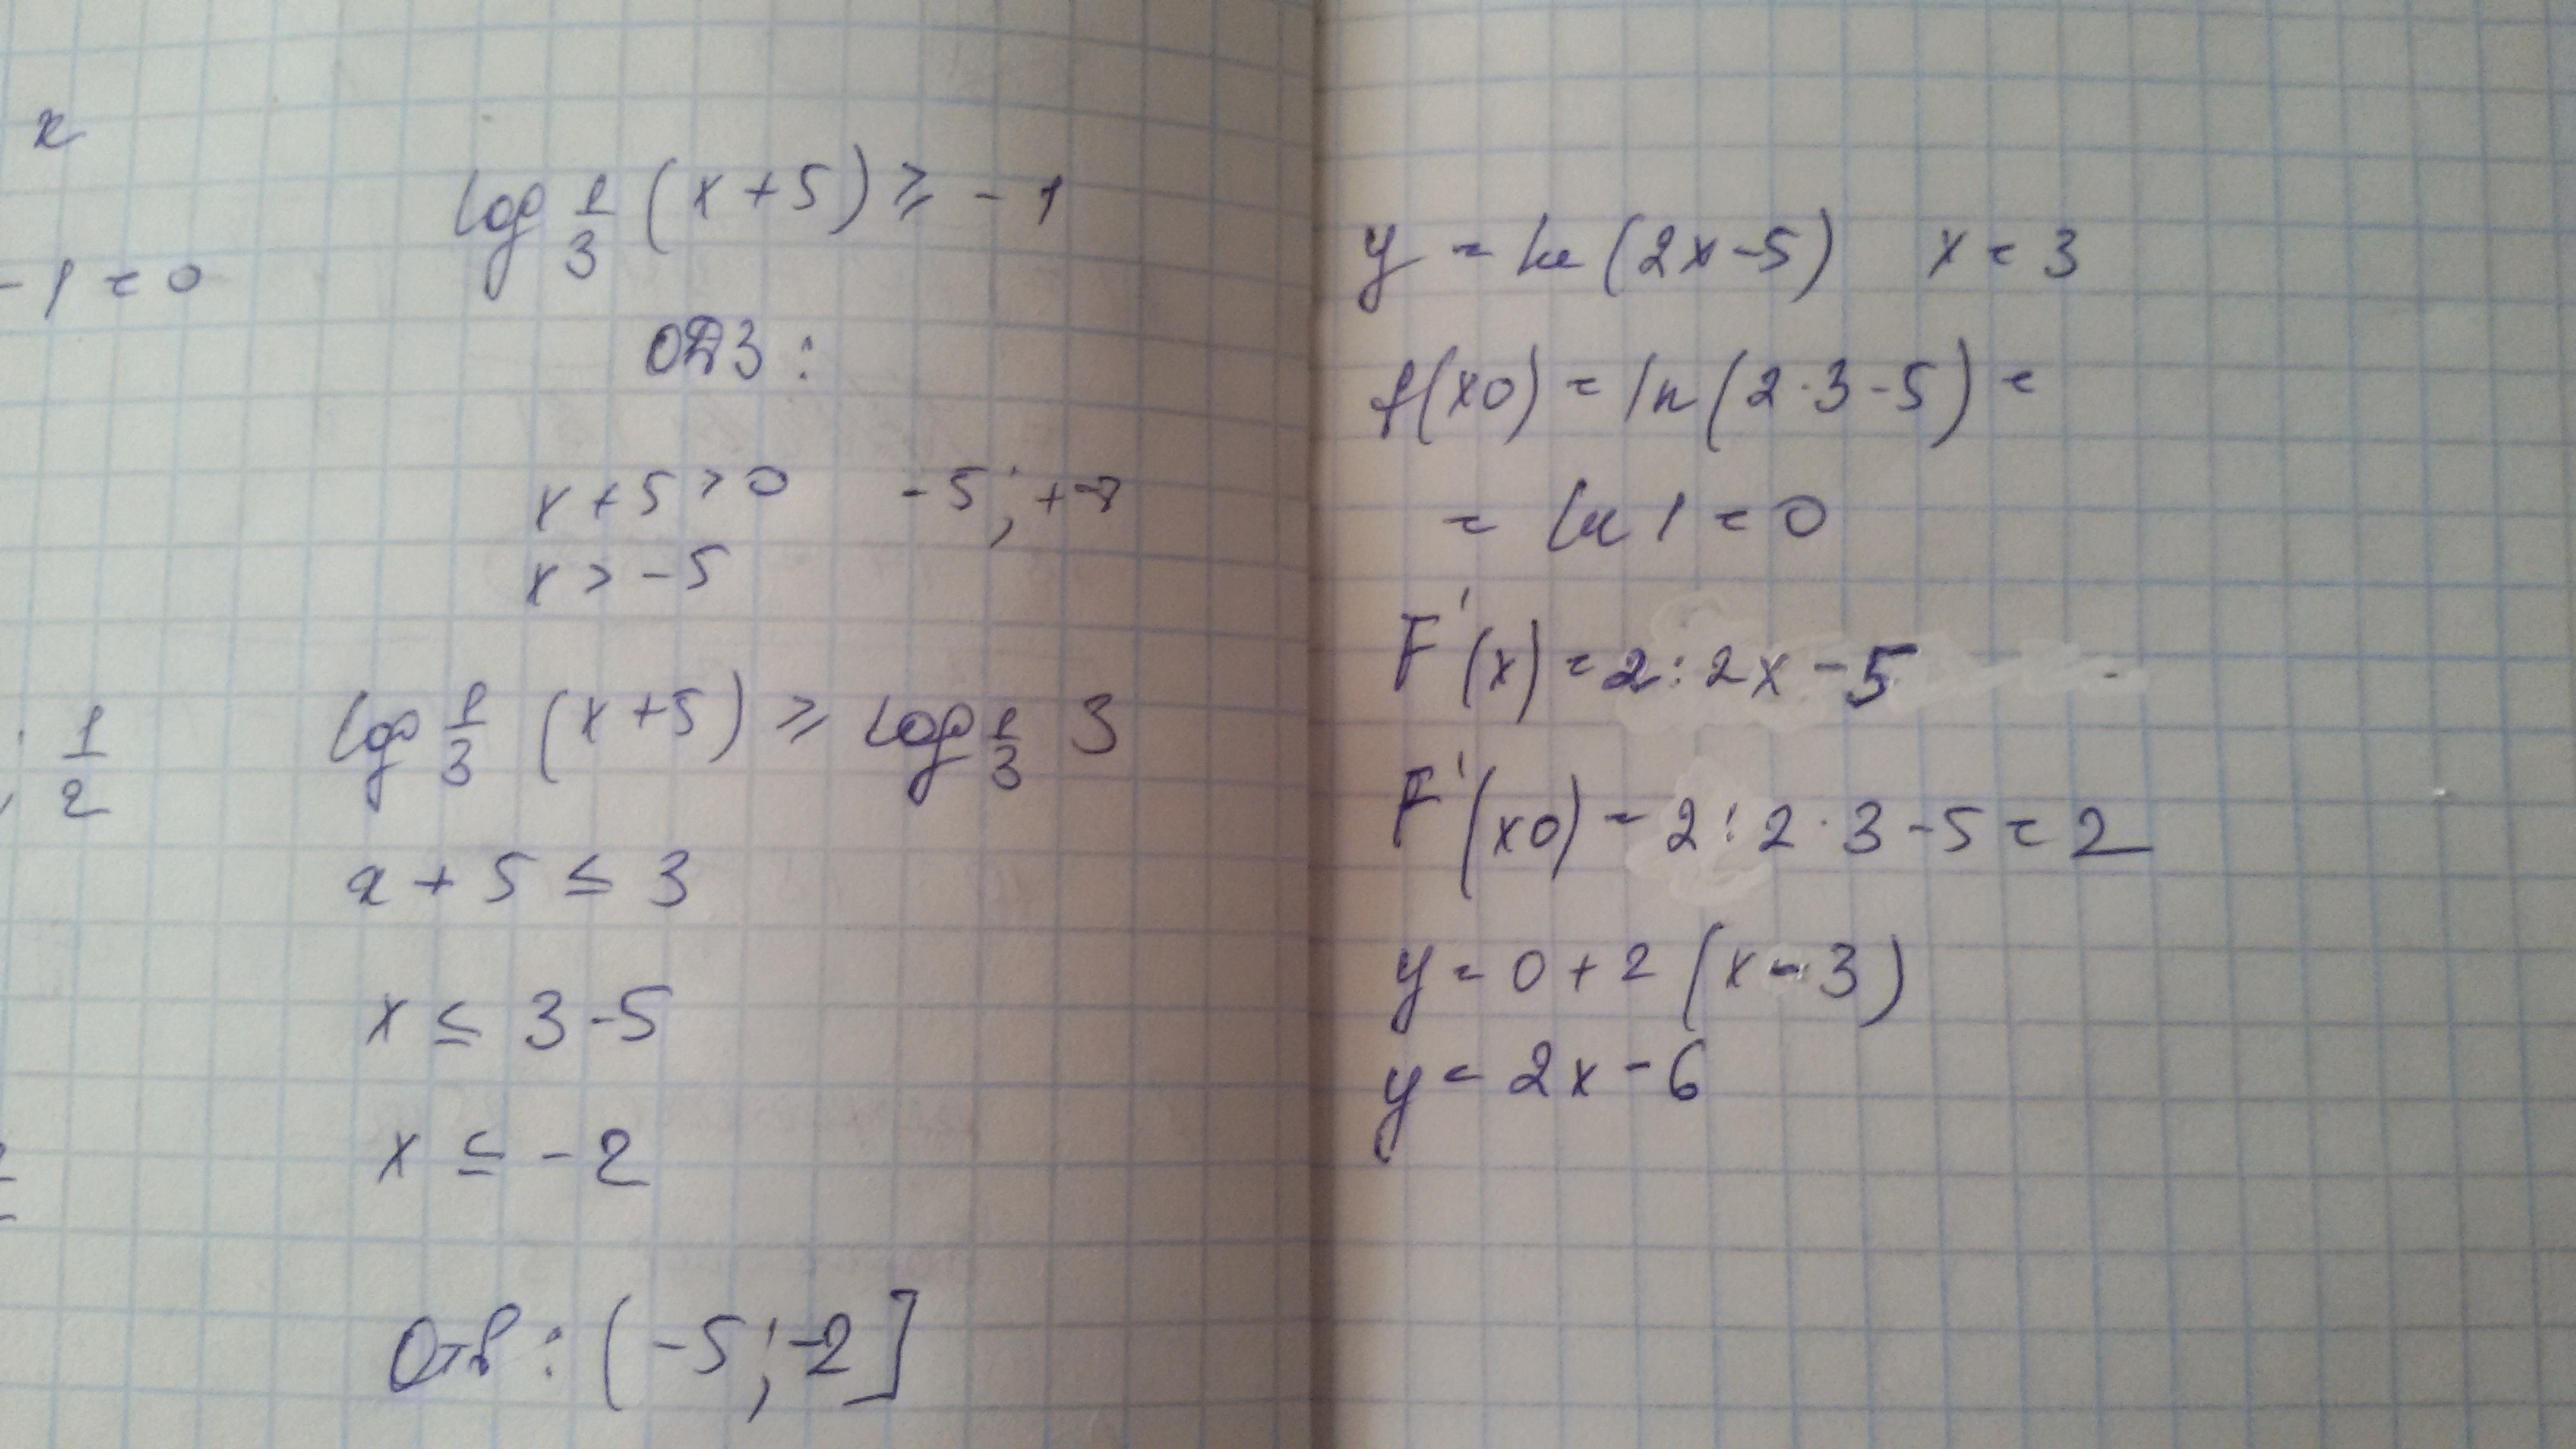 x
- 1 = 0
1/2
log 1/3 (x + 5) ≥ - 1
ОДЗ :
x + 5 > 0 - 5 ; + ∞
x > - 5
log 1/3 (x + 5) ≥ log 1/3 3
x + 5 ≤ 3
x ≤ 3 - 5
x ≤ - 2
Отв : ( - 5 ; - 2 ]
y = ln (2x - 5) x = 3
f(x0) = ln (2 · 3 - 5) =
= ln 1 = 0
F'(x) = 2 : 2x - 5
F'(x0) = 2 : 2 · 3 - 5 = 2
y = 0 + 2 (x - 3)
y = 2x - 6